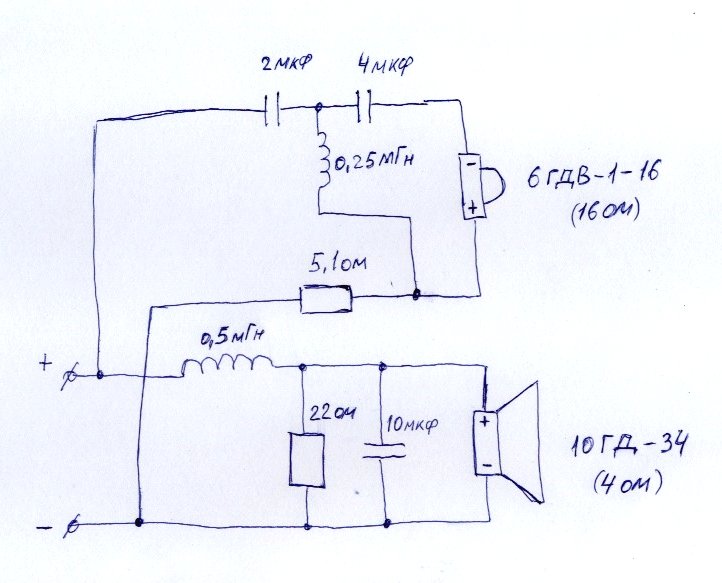 2мкф 4мкф
0,25мГн
-
+
6ГДВ-1-16
(16ом)
5,1ом
0,5мГн
+
22ом
10мкф
+
-
10ГД-34
(4ом)
-